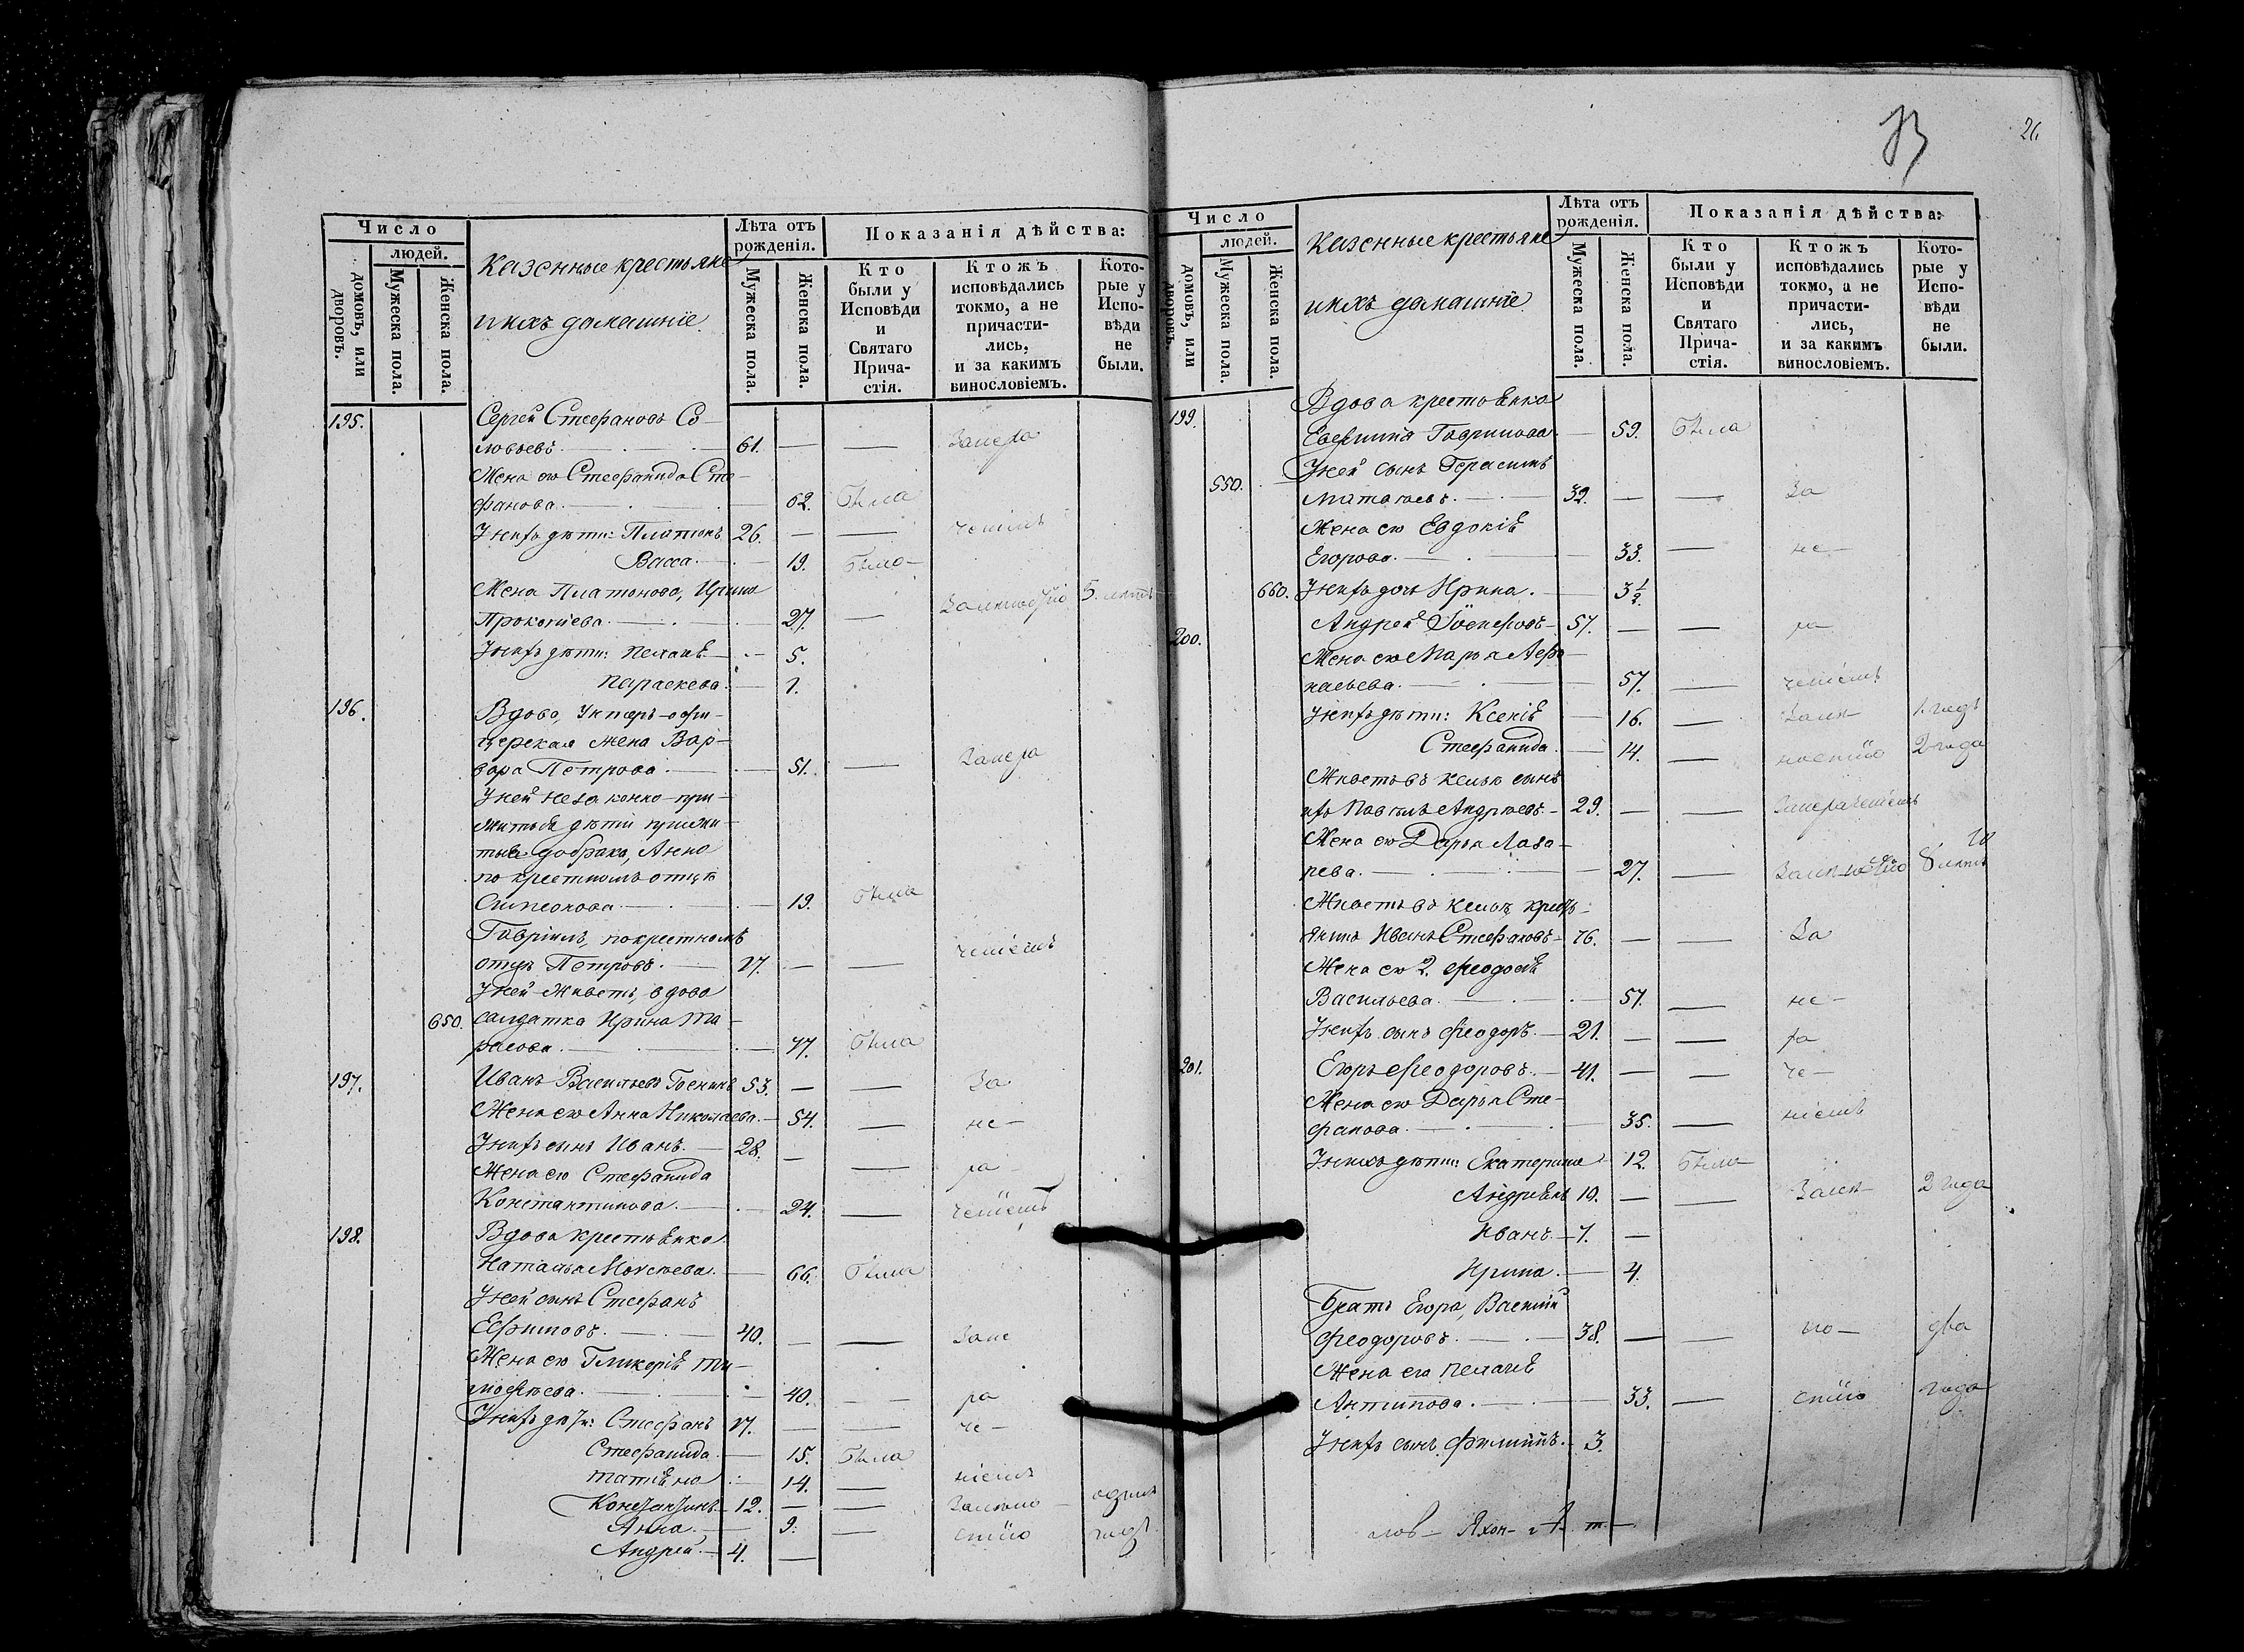 26
Число
людей.
домовъ, или дворовъ.
Мужеска пола.
Женска пола.
Казенные крестьяне
и ихъ домашніе.
Лѣта отъ рожденія.
Мужеска пола.
Женска пола.
Показанія дѣйства:
Кто были у Исповѣди и Святаго Прича-стія.
Ктожъ исповѣдались токмо, а не причасти-лись, и за какимъ винословіемъ.
Кото-рые у Испо-вѣди не были.
195. Сергей Стефановъ Со-
ловьевъ. 61. — — Занера
Жена ею Стефанида Сте-
фанова. 62. Была
У нихъ дѣти: Платонъ 26. — — ченіемъ
Васса. 19. Была
Жена Платонова, Ирина
Прокопіева. 27. — 5. лѣтъ
У нихъ дѣти: Пелагѣ 5.
Параскева. 1.
196. Вдова, Унтеръ-офи-
церская жена Вар-
вара Петрова. 51. — Занера
У ней незаконно-при-
житыѣ дѣти
до брака, Анна
по крестному отцѣ
Симеонова. 19. Была
Гавріилъ, по крестному
отцѣ Петровъ. 17. — — ченіемъ
У ней живетъ, вдова
650. салдатка Ирина Та-
расова. 47. Была
197. Иванъ Васильевъ 53. — — За
Жена ею Анна Николаева. 54. — не-
У нихъ сынъ Иванъ. 28. — — ра
Жена ею Стефанида
Константинова. 24. — ченіемъ
198. Вдова крестьѣнка
Наталья Моѵсеева. 66. Была
У ней сынъ Стефанъ
Ефимовъ. 40. — — Зане
Жена ею Гликеріѣ Ти-
моѳеева. 40. — ра
У нихъ дѣти: Стефанъ 17. — — че-
Стефанида. 15. Была
Татіѣна 14. — ніемъ
Константинъ. 12. — — одинъ
Анна. 9. — стію годъ.
Андрей. 4. —
Число
людей.
домовъ, или дворовъ.
Мужеска пола.
Женска пола.
Казенные крестьяне
и ихъ домашніе.
Лѣта отъ рожденія.
Мужеска пола.
Женска пола.
Показанія дѣйства:
Кто были у Исповѣди и Святаго Прича-стія.
Ктожъ исповѣдались токмо, а не причасти-лись, и за какимъ винословіемъ.
Кото-рые у Испо-вѣди не были.
199. Вдова крестьѣнка
Гаврилова. — 59. Была
550. У ней сынъ Герасимъ
32. — — За
Жена ею Евдокіѣ
Егорова. 33. — не-
660. У нихъ дочь Ирина. 3 1/2.
200. Андрей 57. — — ра
Жена ею Марья Аѳа-
насьева. 57. — ченіемъ
У нихъ дѣти: Ксеніѣ 16. — 1. годъ
Стефанида. 14. — ностію 2 года
Живетъ въ кельи сынъ
ихъ Павелъ Андреевъ. 29. — — Занераченіемъ
Жена ею Дарья Лаза-
рева. 27. — 8 лѣтъ
Живетъ въ кельи, кресть-
ѣнинъ Иванъ Стефановъ 76. — — За
Жена ею 2. Ѳеодосіѣ
Васильева. 57. — не-
У нихъ сынъ Ѳеодоръ. 21. — — ра
201. Егоръ Ѳеодоровъ. 41. — — че-
Жена ею Дарья Сте-
фанова. 35. — ніемъ
У нихъ дѣти: Екатерина 12. Была
Андреѣнъ 10. — — 2 года
Иванъ. 7. —
Ирина. 4.
Братъ Егора, Василій
Ѳеодоровъ. 38. — — но- два
Жена его Пелагіѣ
Антипова. 33. — стію года
У нихъ сынъ Филиппъ. 3.